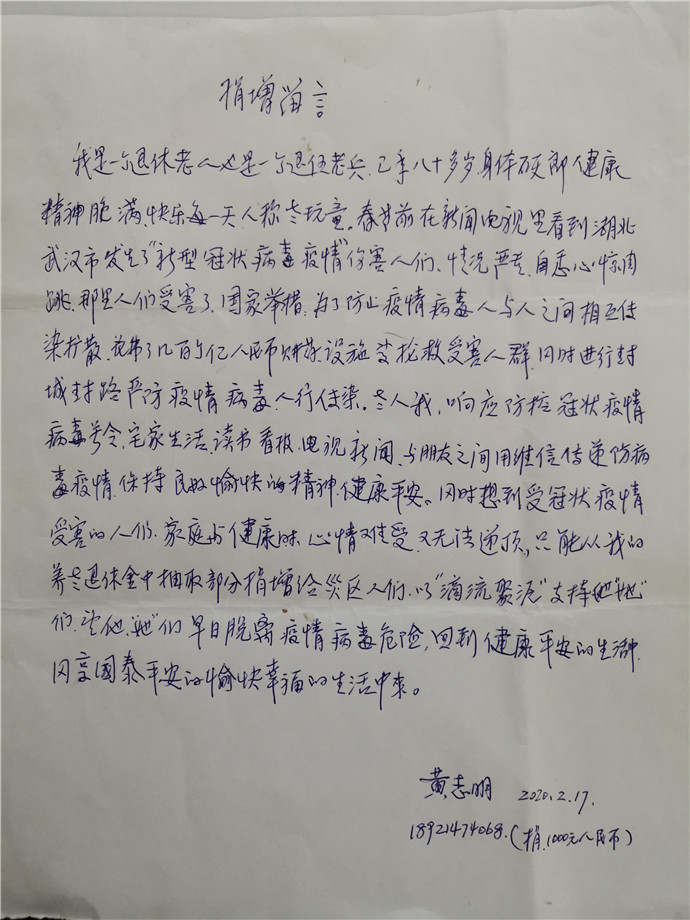 捐增留言
我是一个退休老人也是一个退伍老兵,已年八十多岁,身体硬郎健康
精神胞满,快乐每一天,人称老玩童。春节前在新闻电视里看到湖北
武汉市发生了"新型冠状病毒疫情"伤害人们、情况严重,自悉心惊肉
跳,那里人们受害了,国家举措,为了防止疫情病毒人与人之间相互传
染扩散,花费了几百个亿人民币财 设施 抢救受害人群,同时进行封
城封路严防疫情病毒人行传染。老人我,响应防控冠状疫情
病毒号令,宅家生活,读书看报,电视新闻,与朋友之间用维信传递 病
毒疫情,保持良好愉快的精神,健康平安。同时想到受冠状疫情
受害的人们、家庭与健康时,心情难受,又无法 ,只能从我的
养老退休金中抽取部分捐增给灾区人们,以"滴流聚 "支持他"她"
们,望他"她"们早日脱离疫情病毒危险,回到健康平安的生活中,
同享国泰平安的愉快幸福的生活中来。
黄志明 2020.2.17.
18921474068.(捐.1000元人民币)